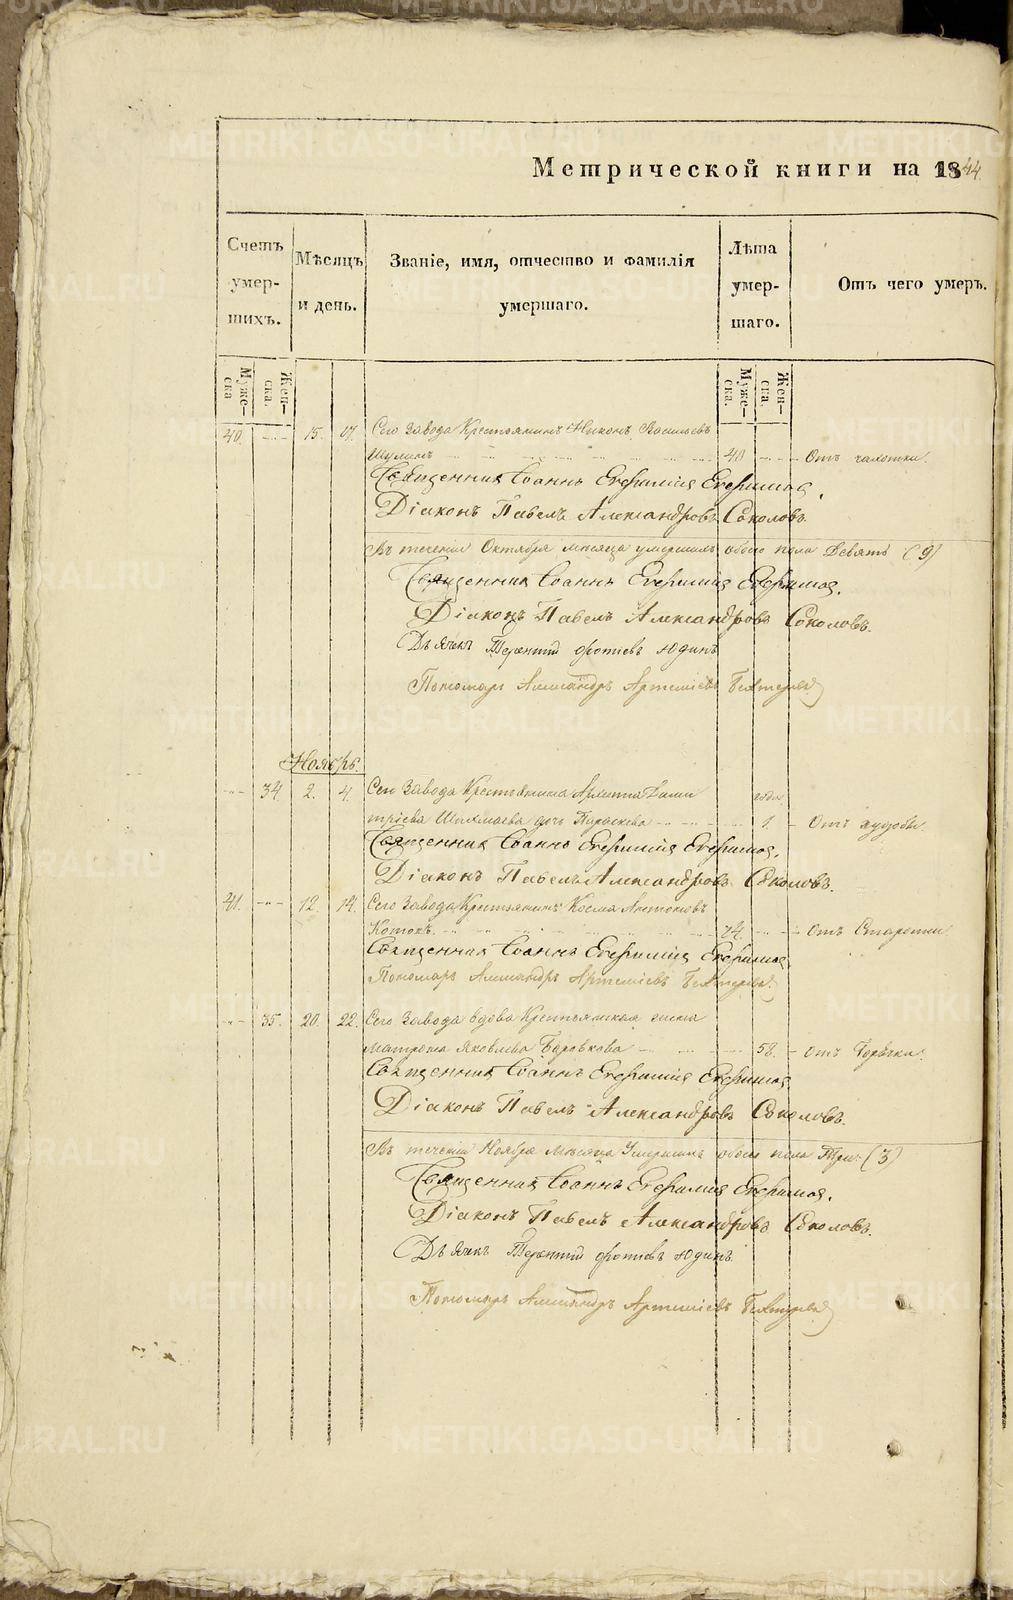 Метрической книги на 1844.
Счетъ умер- шихъ.
Мѣсяцъ и день.
Званіе, имя, отчество и фамилія умершаго.
Лѣта умер- шаго.
Отъ чего умеръ.
Муже- ска
Жен- ска.
Муже- ска.
Жен- ска.
40. 15. 17. Сего Завода Крестьянинъ Никонъ Васильевъ
Шулинъ 40 Отъ чахотки.
Священникъ Іоаннъ Евфиміев Евфимов.
Діаконъ Павелъ Александровъ Соколовъ.
Въ теченіи Октября мѣсяца умершихъ обоего пола Девять (9)
Священникъ Іоаннъ Евфиміев Евфимов.
Діаконъ Павелъ Александровъ Соколовъ.
Дьячекъ Терентій Фотіевъ Юдинъ
Пономарь Александръ Артеміевъ
Ноябрь.
34 2. 4. Сего Завода Крестьянина Дими
тріева дочь Параскева года 1. Отъ худобы.
Священникъ Іоаннъ Евфиміев Евфимов.
Діаконъ Павелъ Александровъ Соколовъ.
41. 12. 14. Сего Завода Крестьянинъ Косма Антоновъ
74. Отъ Старости
Священникъ Іоаннъ Евфиміев Евфимов
Пономарь Александръ Артеміевъ
35. 20. 22. Сего Завода вдова Крестьянская жена
Матрона Яковлева Боровкова 58. Отъ Горячки.
Священникъ Іоаннъ Евфиміев Евфимов
Діаконъ Павелъ Александровъ Соколовъ.
Въ теченіи Ноября мѣсяца Умершихъ обоего пола Три (3)
Священникъ Іоаннъ Евфиміев Евфимов.
Діаконъ Павелъ Александровъ Соколовъ.
Дьячекъ Терентій Фотіевъ Юдинъ.
Пономарь Александръ Артеміевъ
METRIKI.GASO-URAL.RU